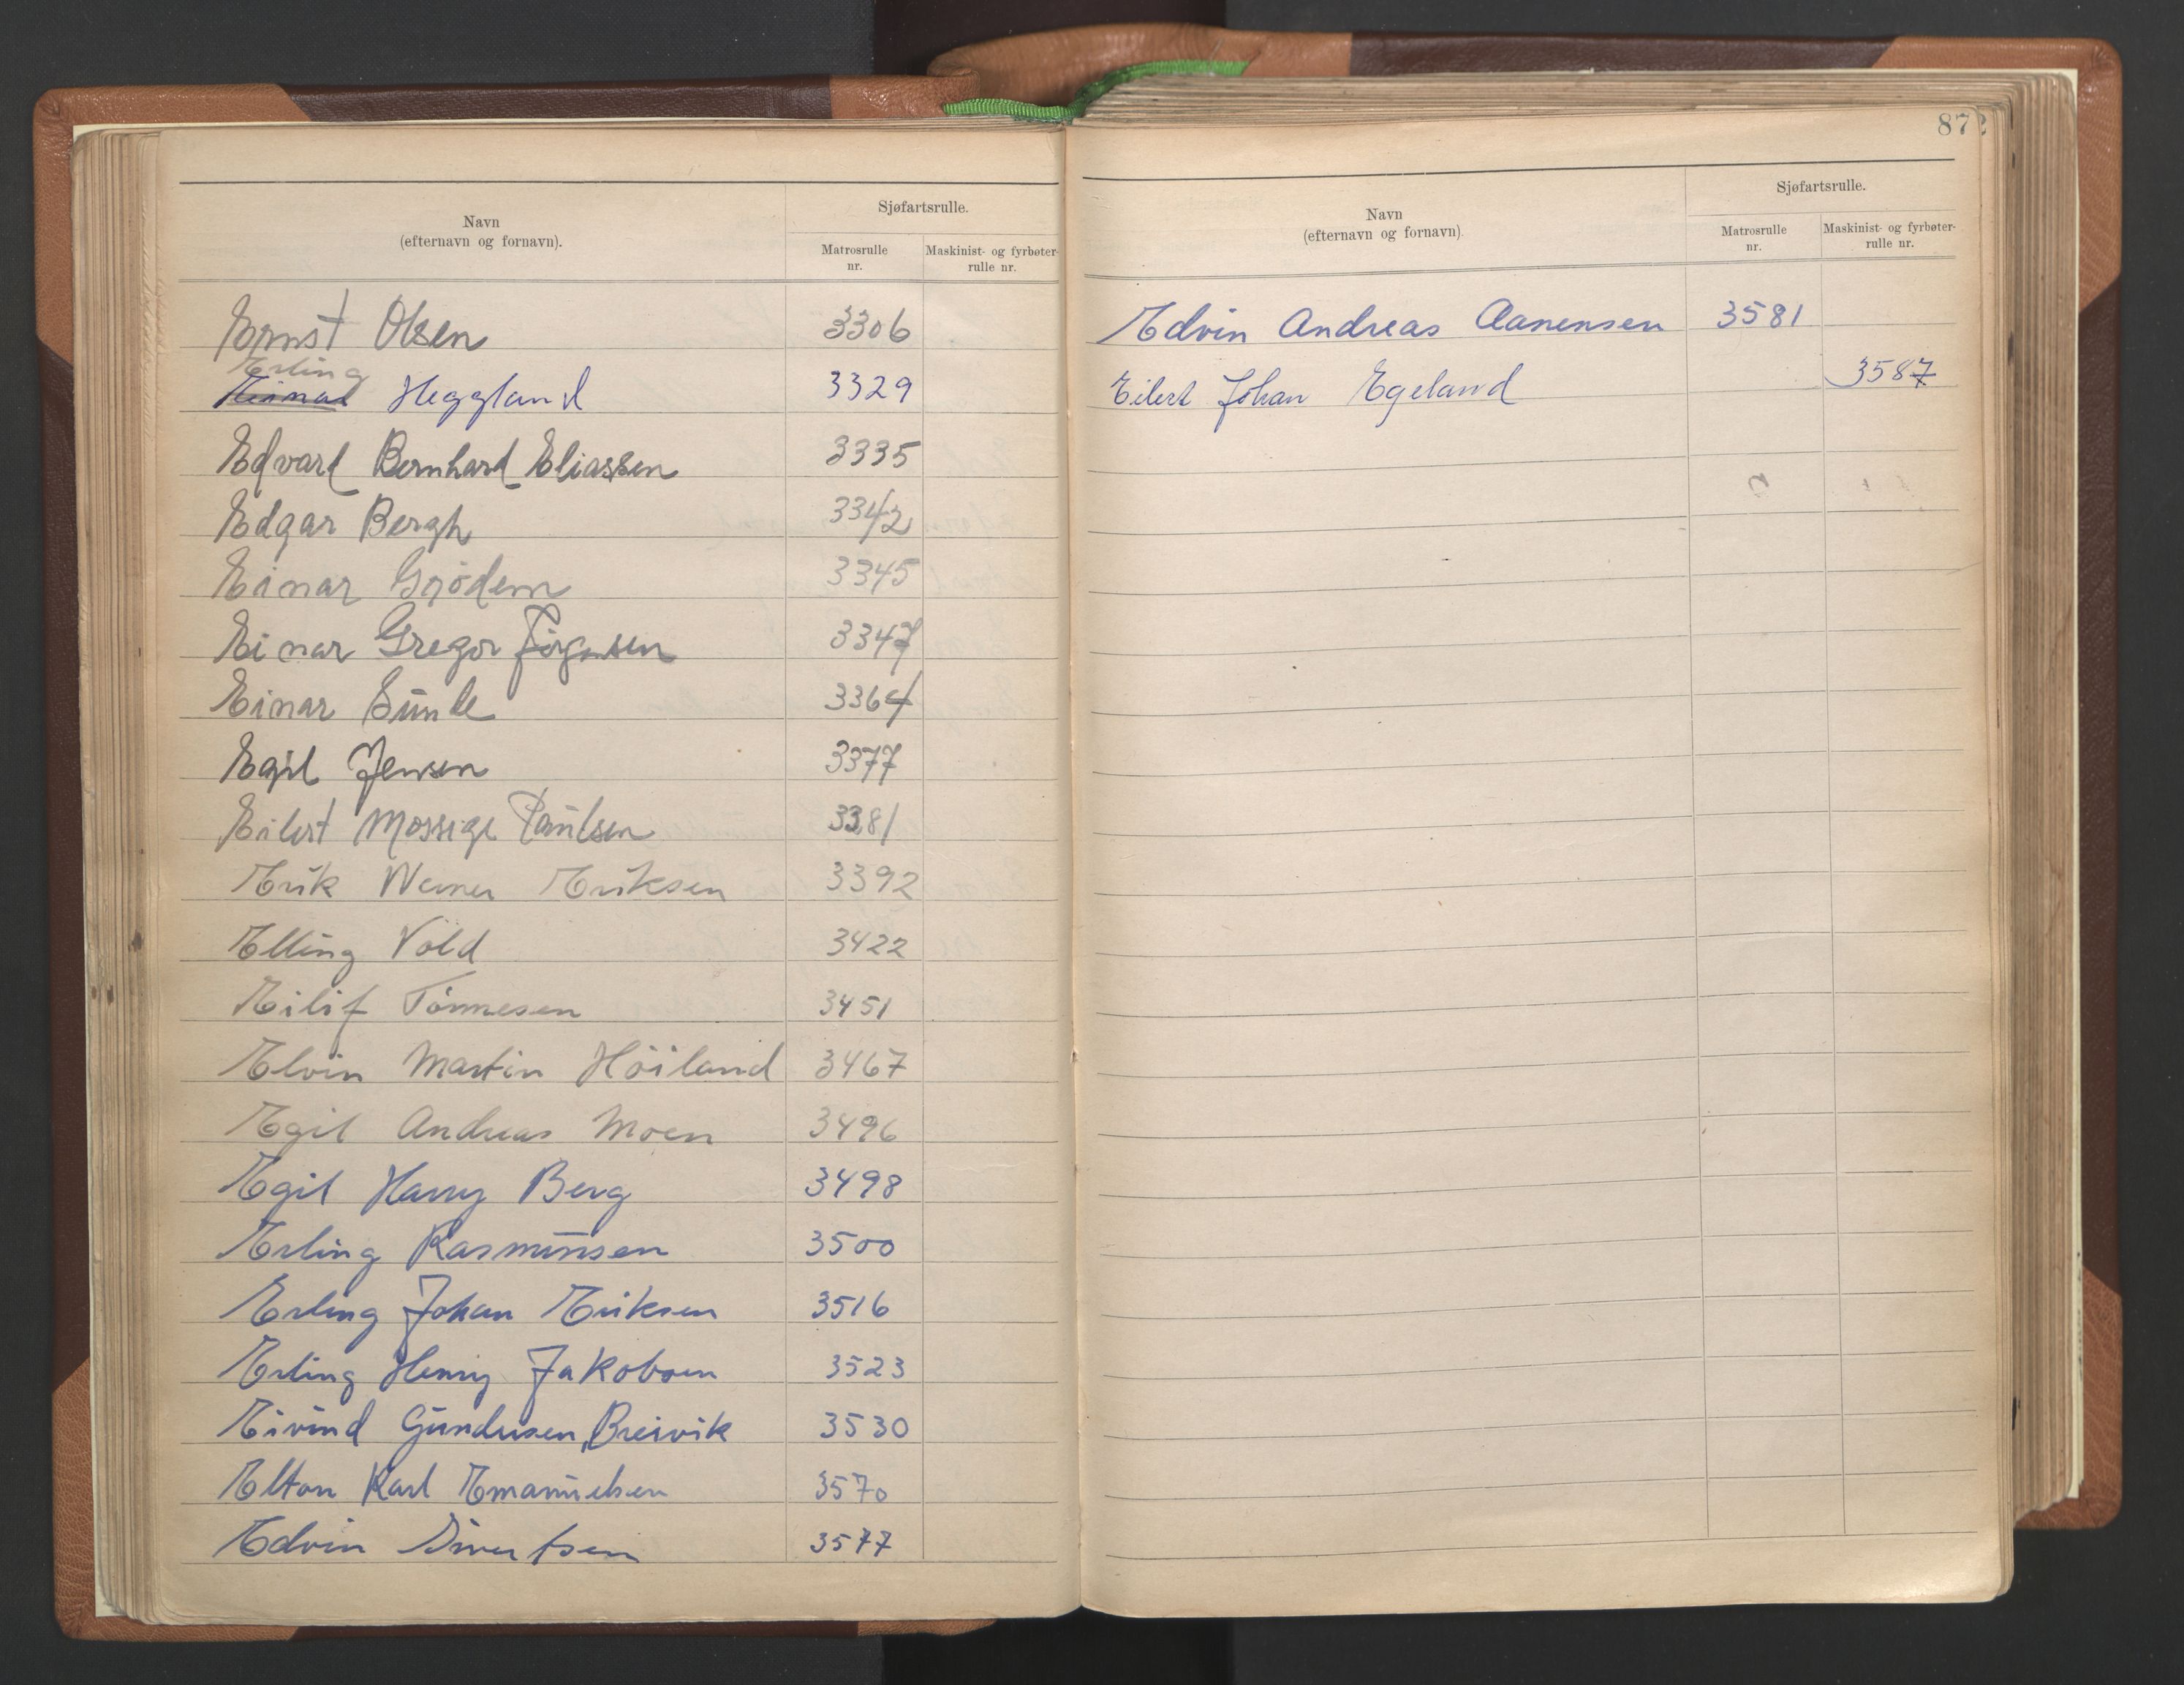 Navn
(efternavn og fornavn).
Sjøfartsrulle.
Matrosrulle
nr.
Maskinist- og fyrbøter-
rulle nr.
Ernst Olsen 3306
Erling
Einar Heggland 3329
Edvard Bernhard Eliassen 3335
Edgar Bergh 3342
Einar Grödem 3345
Einar Gregor Jörgensen 3347
Einar Sunde 3364
Egil Jensen 3377
Eilert Mossige Paulsen 3381
Erik Werner Eriksen 3392
Elling Vold 3422
Eilif Tönnesen 3451
Elvin Martin Höiland 3467
Egil Andreas Moen 3496
Egil Harry Berg 3498
Erling Rasmussen 3500
Erling Johan Eriksen 3516
Erling Henry Jakobsen 3523
Eivind Gundersen Breivik 3530
Elton Karl Emanuelsen 3570
Edvin Sivertsen 3577
872
Navn
(efternavn og fornavn)
Sjøfartsrulle.
Matrosrulle
nr.
Maskinist- og fyrbøter-
rulle nr.
Edvin Andreas Aanensen 3581
Eilert Johan Egeland 3587